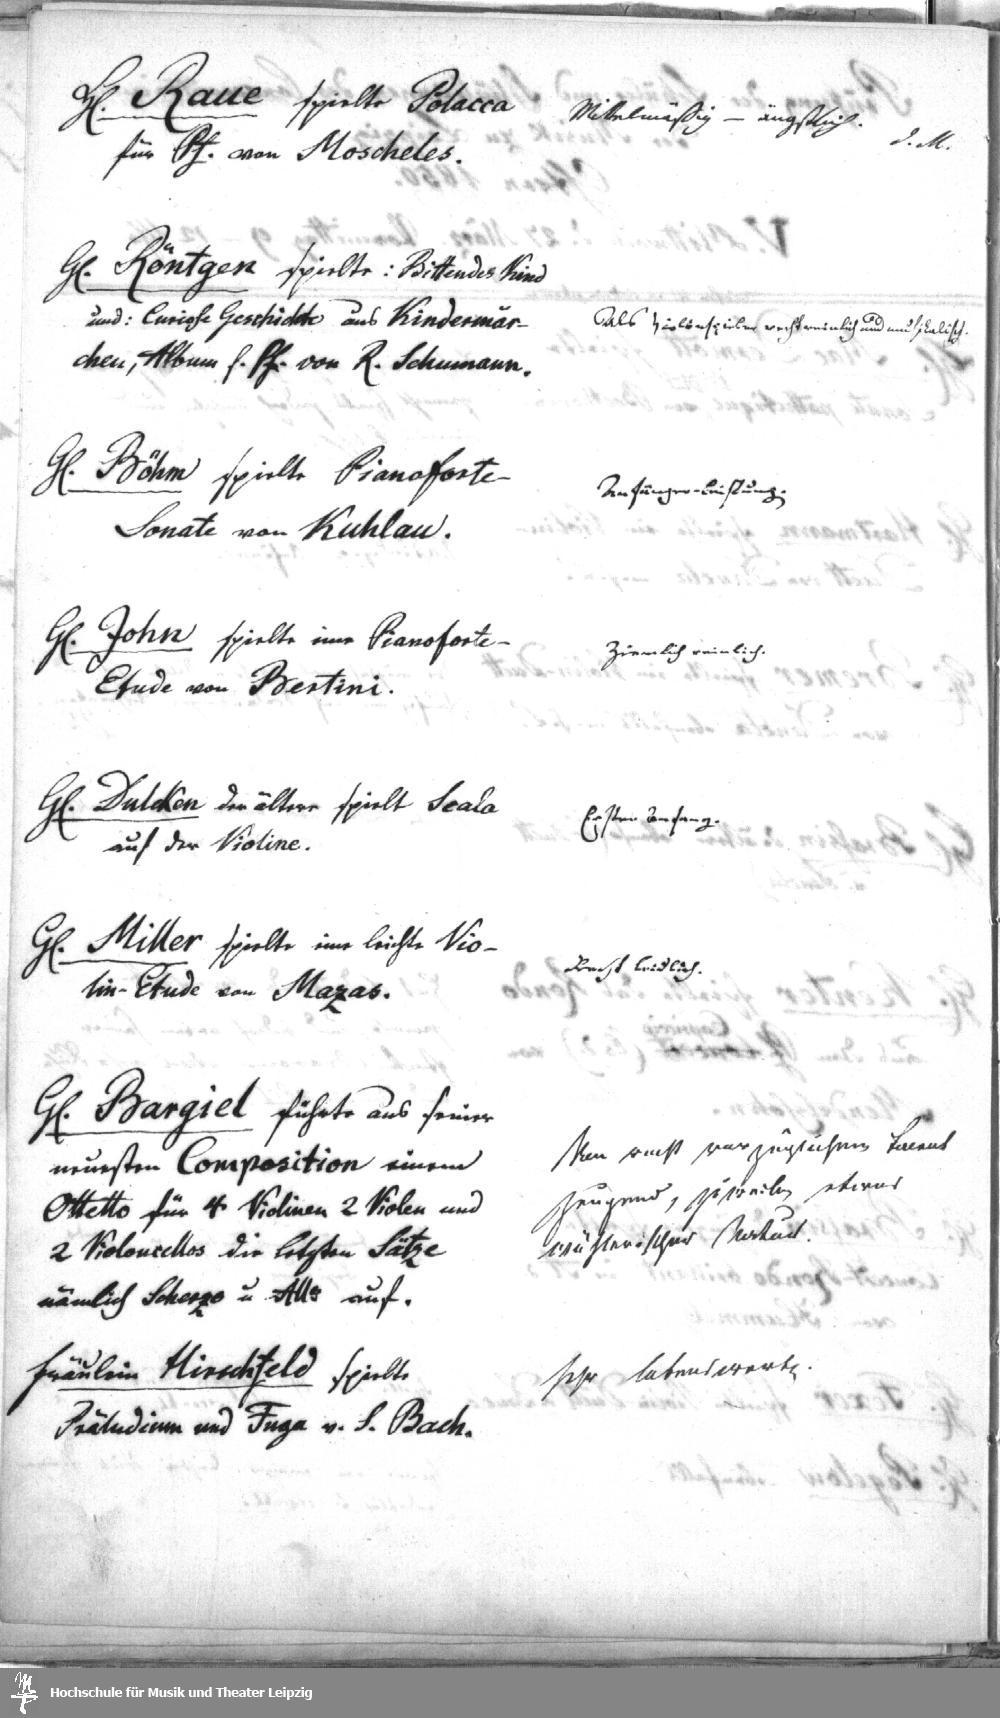 H. Raue spielte Polacca
für Pf. von Moscheles.
Mittelmäßig – ängstlich.
I. M.
H. Röntgen spielte: Bittendes Kind
und: Curiose Geschichte aus Kindermär-
chen, Album f. Pf. von R. Schumann.
Als Violinspieler recht reinlich und musikalisch.
H. Böhm spielte Pianoforte-
Sonate von Kuhlau.
Anfänger-Leistung.
H. John spielte eine Pianoforte-
Etude von Bertini.
Ziemlich reinlich.
H. Dulcken der ältere spielt Scala
auf der Violine.
Erster Anfang.
H. Miller spielte eine leichte Vio-
lin-Etude von Mazas.
Recht leidlich.
H. Bargiel führte aus seiner
neuesten Composition einem
Ottetto für 4 Violinen 2 Violen und
2 Violoncellos die letzten Sätze
nämlich Scherzo u All° auf.
Von recht vorzüglichem Talent
zeugend, zuweilen etwas
Fräulein Hirschfeld spielte
Präludium und Fuga v. S. Bach.
Sehr lobenswerth.
Hochschule für Musik und Theater Leipzig